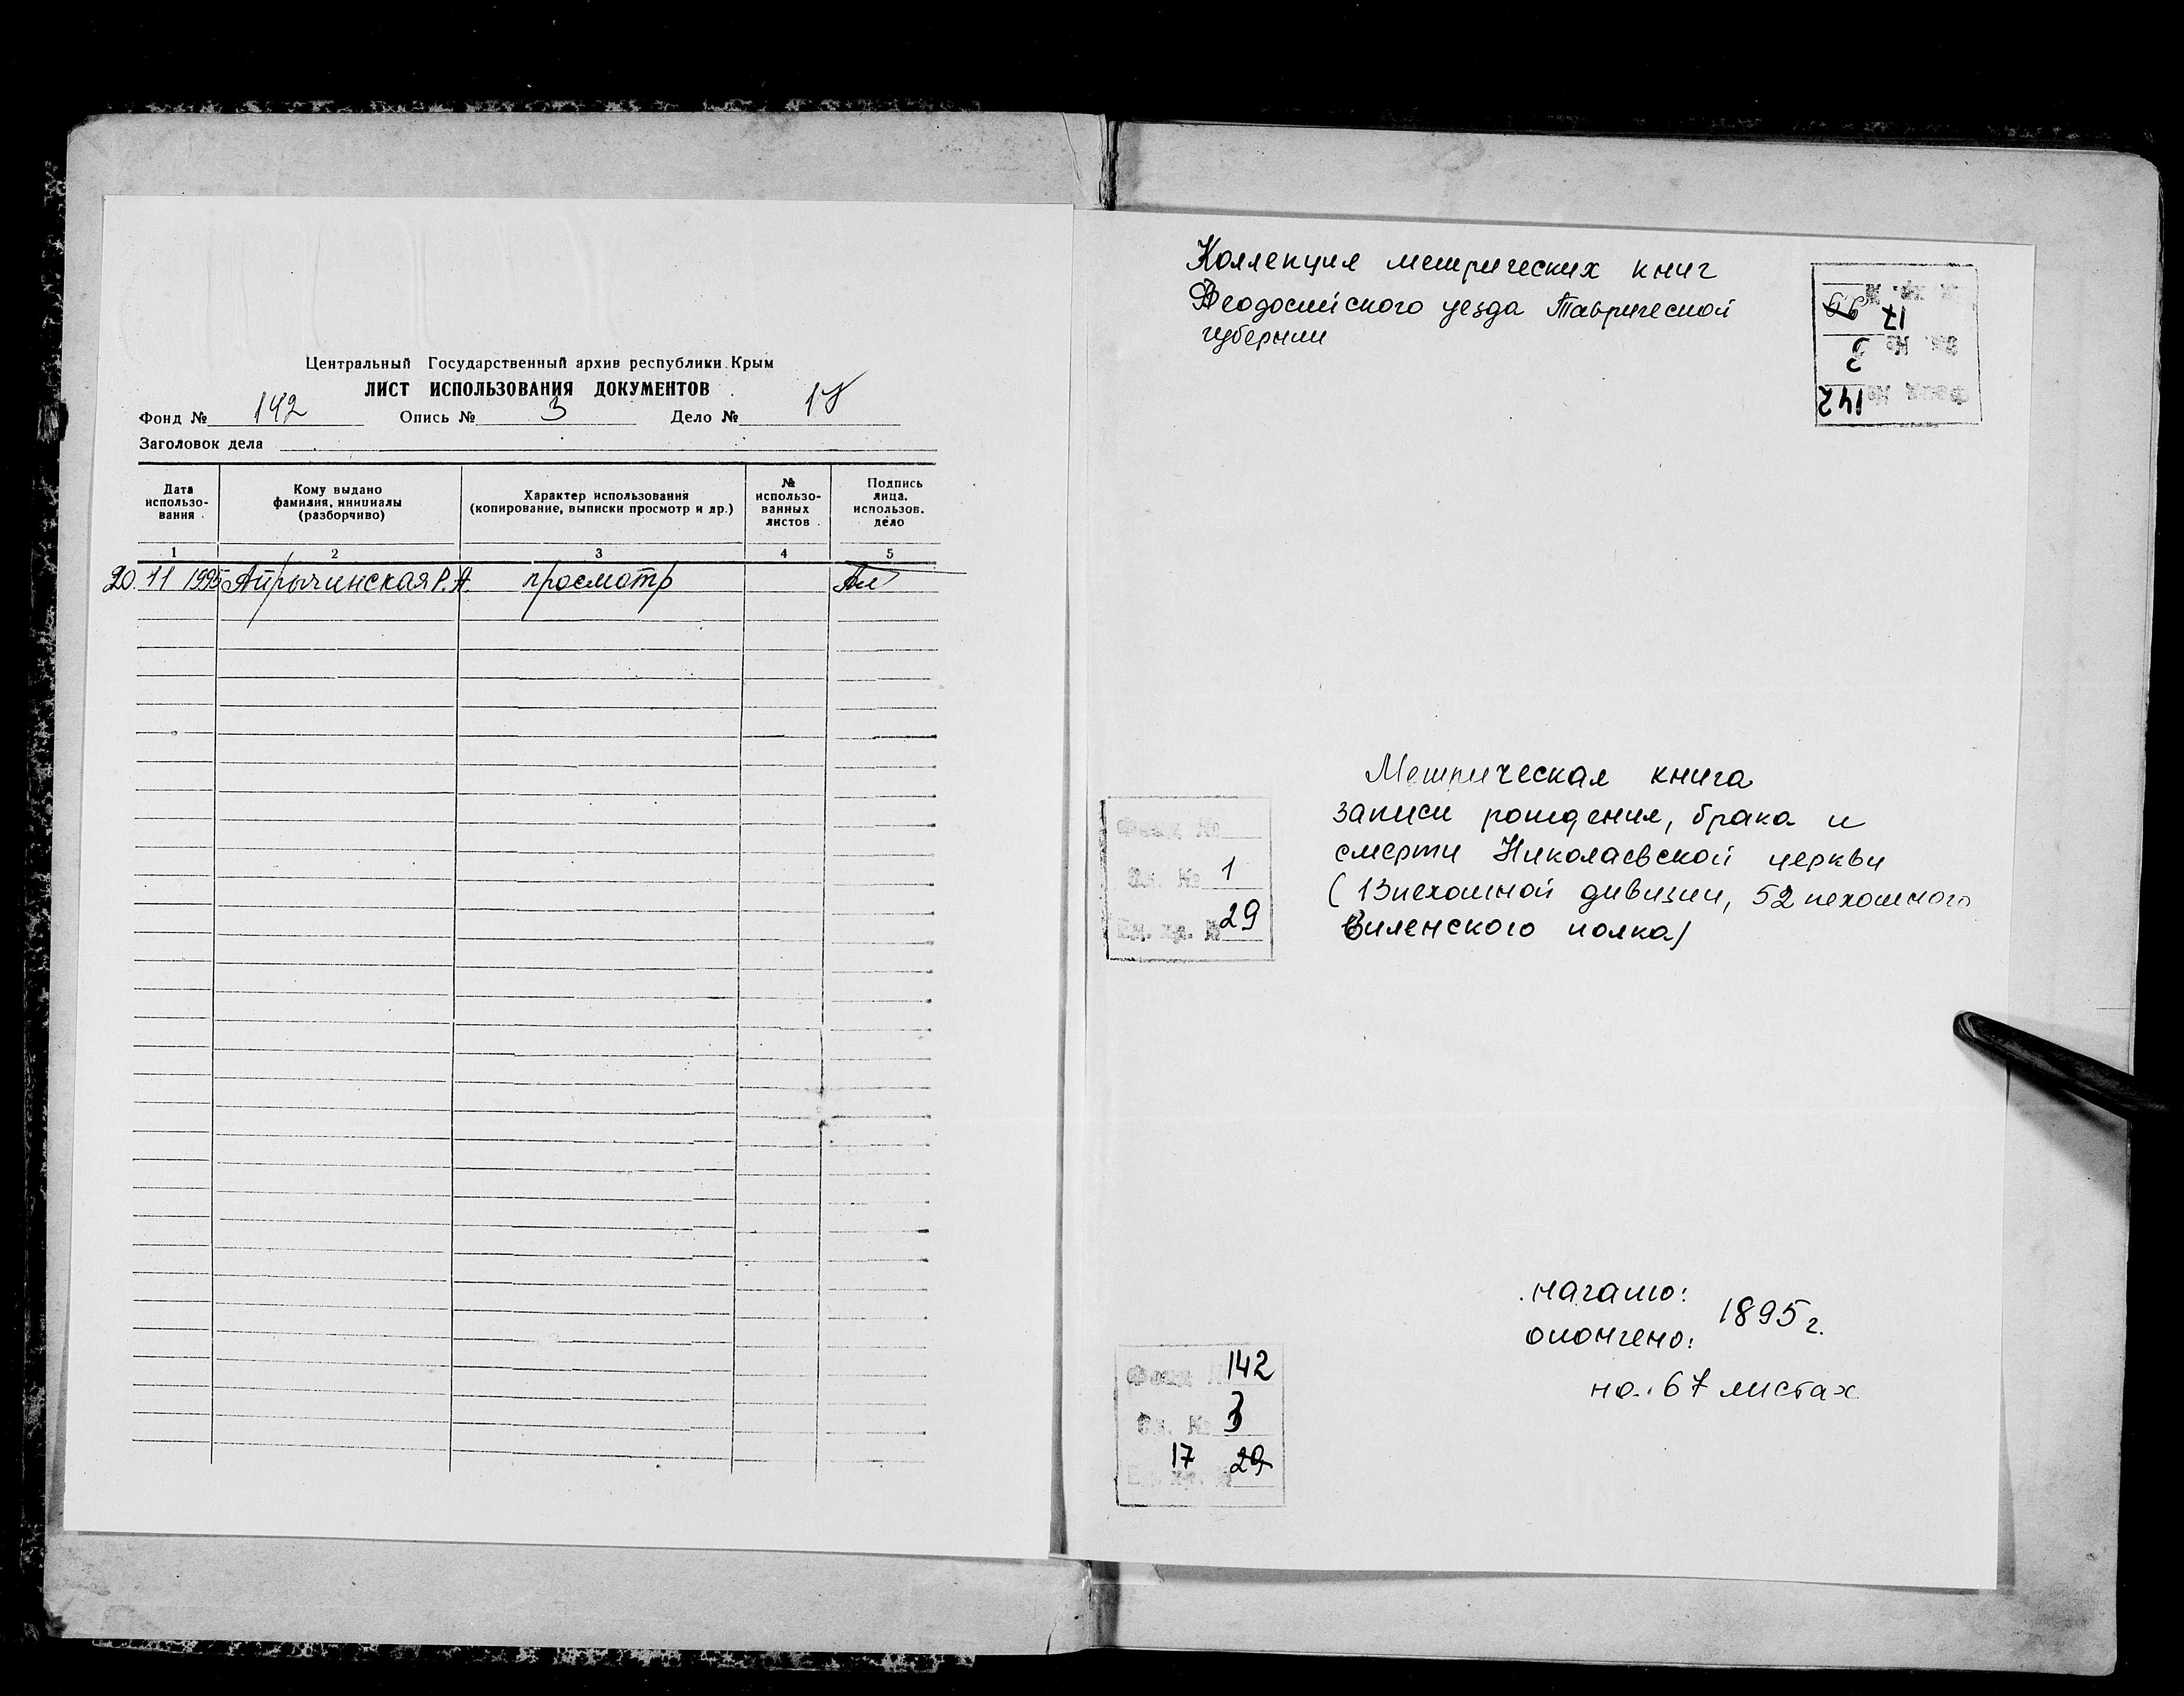 Центральный Государственный архив республики Крым
ЛИСТ ИСПОЛЬЗОВАНИЯ ДОКУМЕНТОВ
Фонд № 142 Опись № 3 Дело №
Заголовок дела
Дата использо-вания
Кому выдано фамилия, инициалы (разборчиво)
Характер использования (копирование, выписки просмотр и др.)
№ использо-ванных листов
Подпись лица. использов. дело
1 2 3 4 5
20.11 1995 Апрычинская Р.А. просмотр
Коллекция метрических книг
Феодосийского уезда Таврической
губернии
Фонд № 142
Оп. № 3
Ед. хр. № 17
Метрическая книга
записи рождения, брака и
смерти Николаевской церкви
(13 пехотной дивизии, 52 пехотного
Виленского полка)
Фонд №
Оп. № 1
Ед. хр. № 29
начато:
1895 г.
окончено:
на 67 листах
Фонд № 142
Оп. № 3
Ед. хр. № 17 29